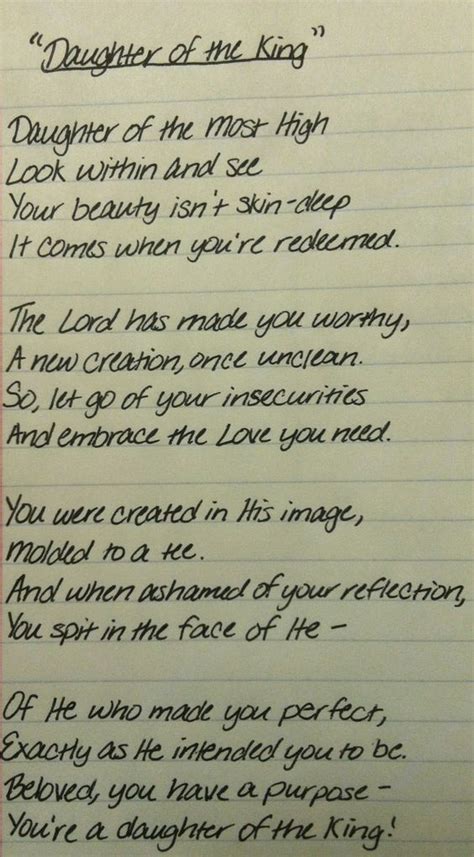 "Daughter of the King"
Daughter of the Most High
Look within and see
Your beauty isn't skin-deep
It comes when you're redeemed.
The Lord has made you worthy,
A new creation, once unclean.
So, let go of your insecurities
And embrace the Love you need.
You were created in His image,
Molded to a tee.
And when ashamed of your reflection,
You spit in the face of He –
Of He who made you perfect,
Exactly as He intended you to be.
Beloved, you have a purpose –
You're a daughter of the King!